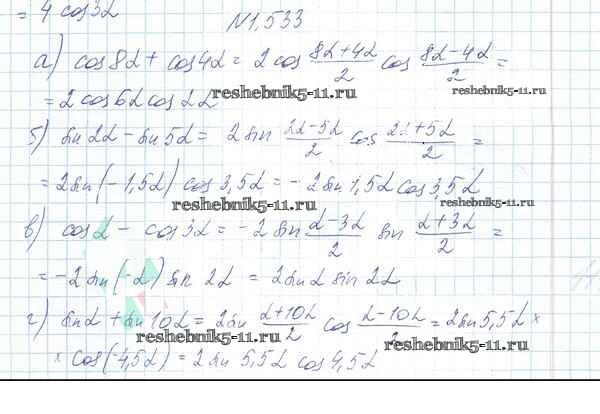 = 4 cos3α
N1,533
а) cos8α + cos4α = 2cos (8α+4α)/2 cos (8α-4α)/2 =
reshebnik5-11.ru
reshebnik5-11.ru
= 2cos6α cos2α
б) sin2α - sin5α = 2sin (2α-5α)/2 cos (2α+5α)/2 =
= 2sin(-1,5α) cos3,5α = -2sin1,5α cos3,5α
reshebnik5-11.ru
reshebnik5-11.ru
в) cosα - cos3α = -2 sin (α-3α)/2 sin (α+3α)/2 =
= -2sin(-α) sin2α = 2sinα sin2α
г) sinα + sin10α = 2sin (α+10α)/2 cos (α-10α)/2 = 2sin5,5α ×
reshebnik5-11.ru
reshebnik5-11.ru
× cos(-4,5α) = 2sin5,5α cos4,5α